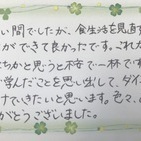 い間でしたが、食生活を見直す
ができて良かったです。これか
ちかと思うと不安で一杯です
学んだことを思い出して、ダイ
けていきたいと思います。色々、
がとうございました。